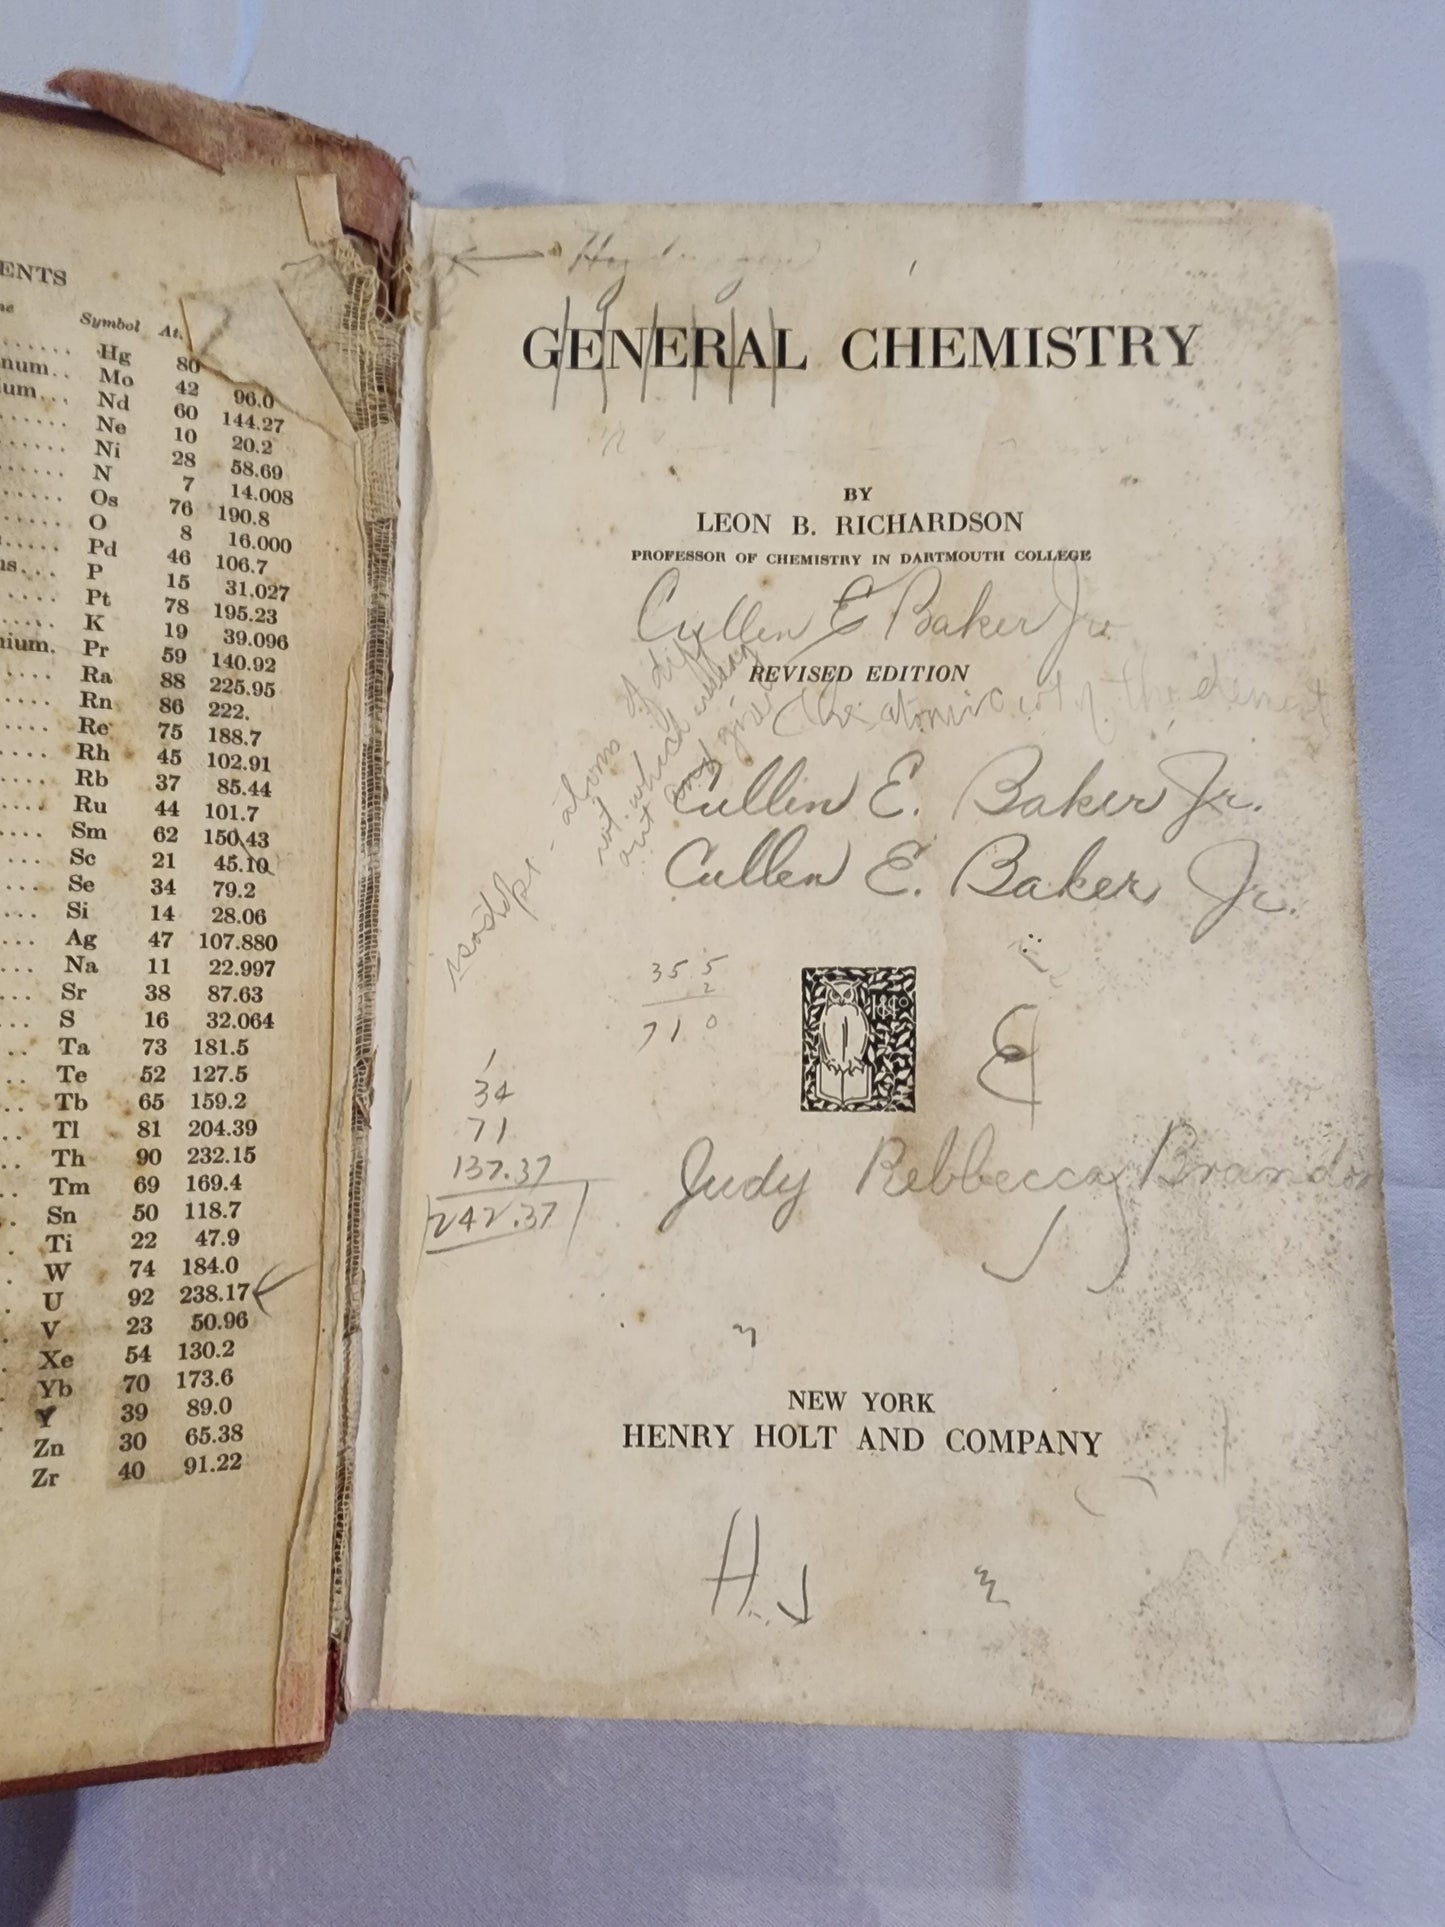 ENTS
Symbol At.
Hg 80
num.. Mo 42 96.0
ium... Nd 60 144.27
Ne 10 20.2
Ni 28 58.69
N 7 14.008
Os 76 190.8
O 8 16.000
Pd 46 106.7
P 15 31.027
Pt 78 195.23
K 19 39.096
nium. Pr 59 140.92
Ra 88 225.95
Rn 86 222.
Re 75 188.7
Rh 45 102.91
Rb 37 85.44
Ru 44 101.7
Sm 62 150.43
Sc 21 45.10
Se 34 79.2
Si 14 28.06
Ag 47 107.880
Na 11 22.997
Sr 38 87.63
S 16 32.064
Ta 73 181.5
Te 52 127.5
Tb 65 159.2
Tl 81 204.39
Th 90 232.15
Tm 69 169.4
Sn 50 118.7
Ti 22 47.9
W 74 184.0
U 92 238.17
V 23 50.96
Xe 54 130.2
Yb 70 173.6
Y 39 89.0
Zn 30 65.38
Zr 40 91.22
GENERAL CHEMISTRY
BY
LEON B. RICHARDSON
PROFESSOR OF CHEMISTRY IN DARTMOUTH COLLEGE
Cullen E Baker Jr.
REVISED EDITION
The atomic wt of the element
Cullen E. Baker Jr.
Cullen E. Baker Jr.
35.5
2
71 0
34
71
137.37
242.37
E
Judy Rebbecca Brandon
NEW YORK
HENRY HOLT AND COMPANY
H.